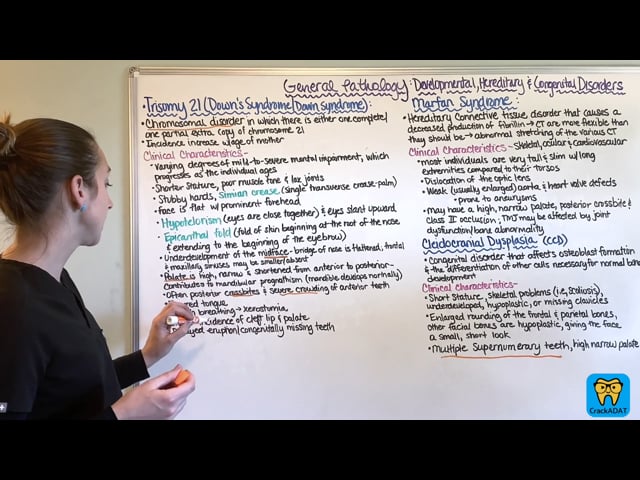 General Pathology: Developmental, Hereditary & Congenital Disorders
Trisomy 21 (Down's Syndrome/Down Syndrome):
• Chromosomal disorder in which there is either one complete/
one partial extra copy of chromosome 21
• Incidence increase w/age of mother
Clinical Characteristics-
• Varying degrees of mild-to-severe mental impairment, which
progresses as the individual ages
• Shorter stature, poor muscle tone & lax joints
• Stubby hands, simian crease (single transverse crease-palm)
• Face is flat w/prominent forehead
• Hypotelorism (eyes are close together) & eyes slant upward
• Epicanthal fold (fold of skin beginning at the root of the nose
& extending to the beginning of the eyebrow)
• Underdevelopment of the midface - bridge of nose is flattened, frontal
& maxillary sinuses may be smaller/absent
• Palate is high, narrow & shortened from anterior to posterior-
contributes to mandibular prognathism (mandible develops normally)
• Often posterior crossbites & severe crowding of anterior teeth
tongue
breathing → xerostomia,
incidence of cleft lip & palate
eruption/congenitally missing teeth
Marfan Syndrome:
• Hereditary connective tissue disorder that causes a
decreased production of fibrillin → CT are more flexible than
they should be → abnormal stretching of the various CT
Clinical Characteristics - Skeletal, ocular & cardiovascular
• most individuals are very tall & slim w/long
extremities compared to their torsos
• Dislocation of the optic lens
• Weak (usually enlarged) aorta & heart valve defects
• prone to aneurysms
• May have a high, narrow palate, posterior crossbite &
class II occlusion; TMJ may be affected by joint
dysfunction/bone abnormality
Cleidocranial Dysplasia (CCD)
• Congenital disorder that affects osteoblast formation
& the differentiation of other cells necessary for normal bone
development
Clinical characteristics-
• Short stature, skeletal problems (i.e., scoliosis),
underdeveloped, hypoplastic, or missing clavicles
• Enlarged rounding of the frontal & parietal bones,
other facial bones are hypoplastic, giving the face
a small, short look
• Multiple supernumerary teeth, high narrow palate
CrackADAT